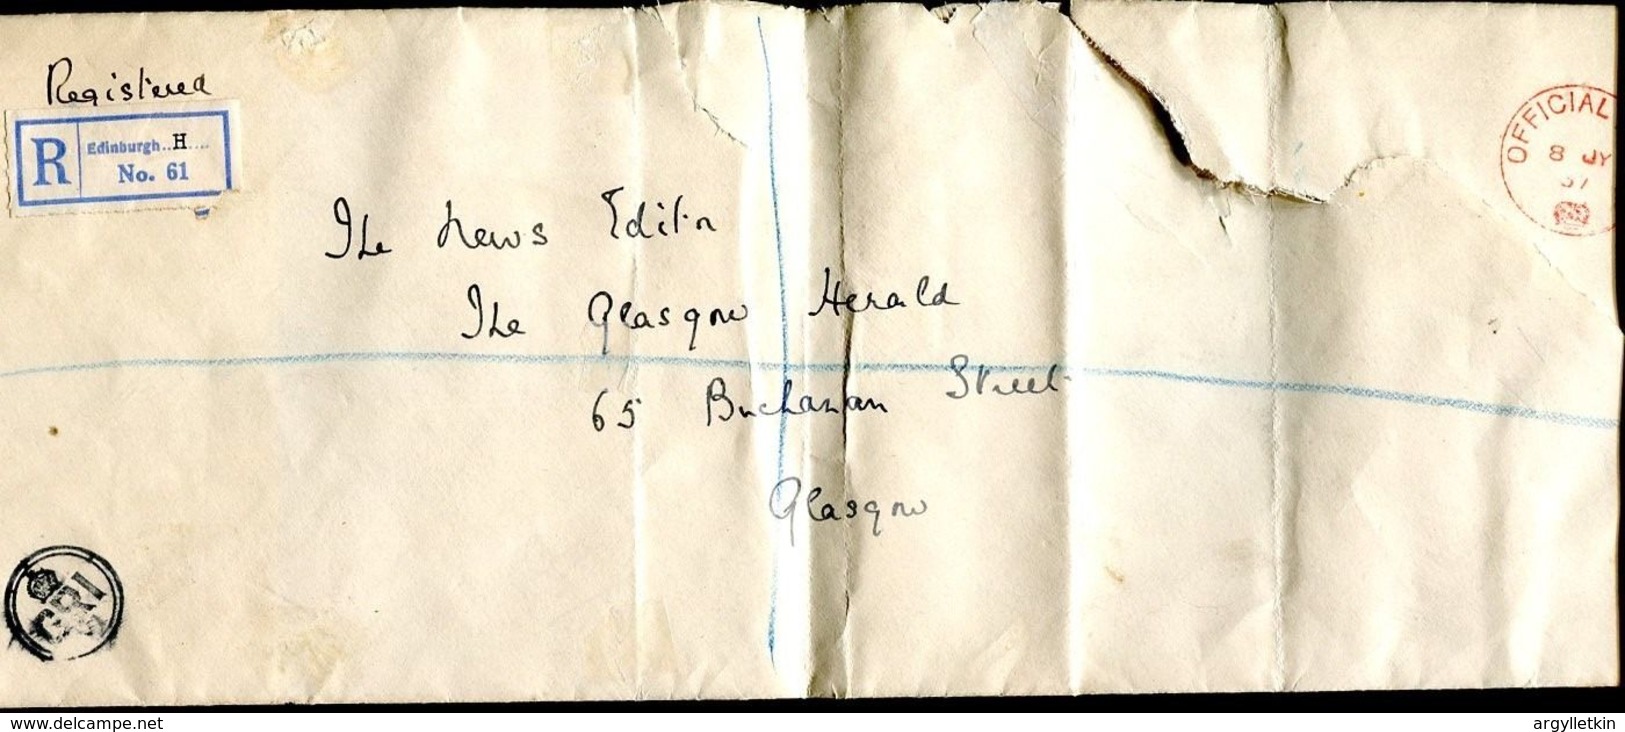 Registered
R
Edinburgh..H....
No. 61
OFFICIAL
8 JY
37
The News Editor
The Glasgow Herald
65 Buchanan Street
Glasgow
GRI
www.delcampe.net
argylletkin